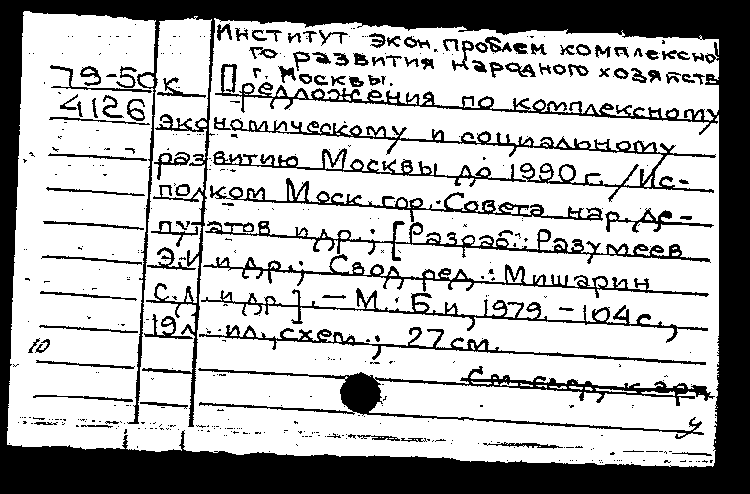 Институт экон. проблем комплексно
го развития народного хозяйств
г. Москвы.
79-50к Предложения по комплексному
4126 экономическому и социальному
развитию Москвы до 1990 г. /Ис-
полком Моск. гор. Совета нар. де-
путатов и др.; [Разраб.: Разумеев
Э.И и др.; Свод. ред.: Мишарин
С.Д. и др.]. — М.: Б.и., 1979. - 104 с.,
19 л. ил., схем.; 27 см.
10
См. след. карт
у